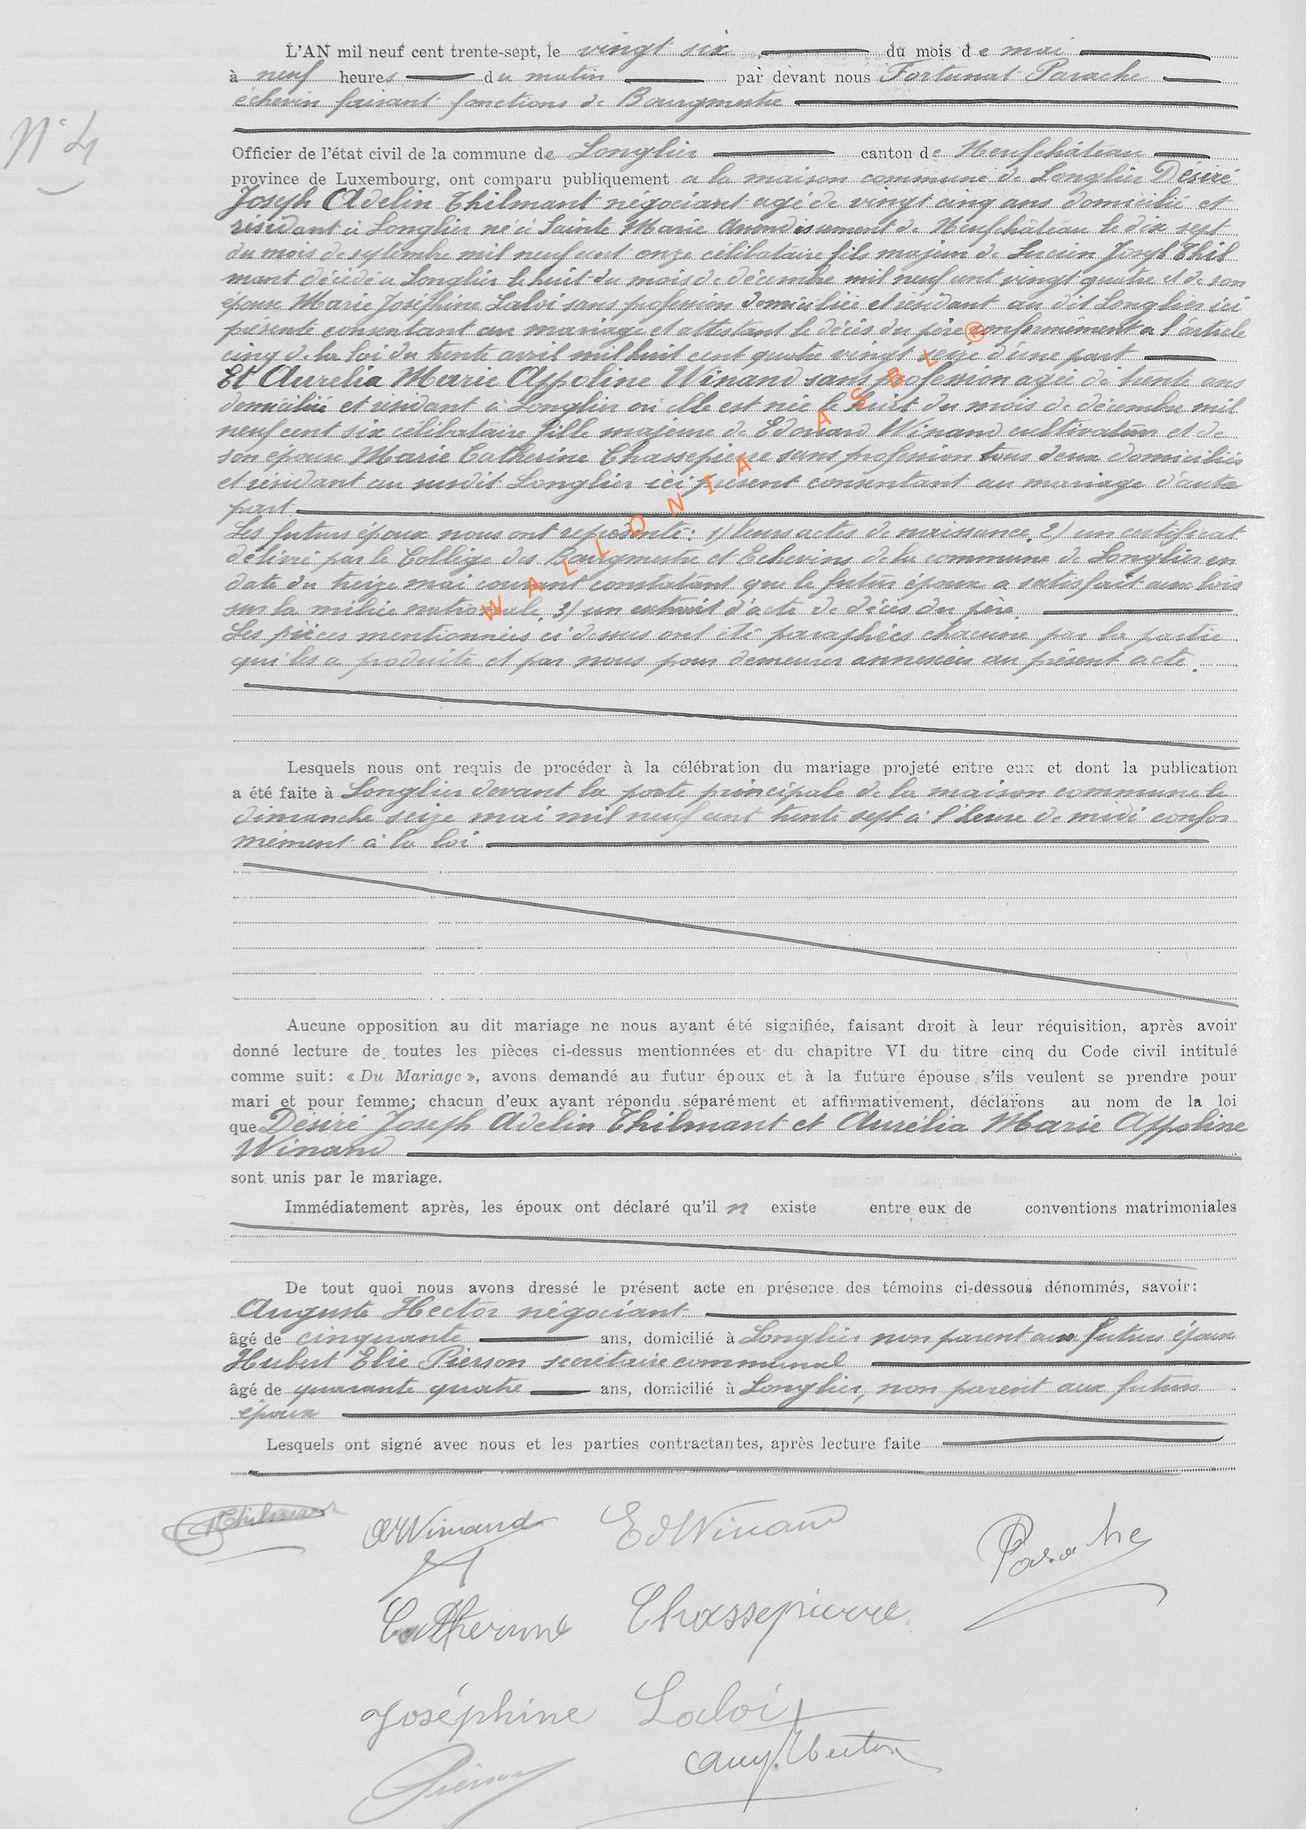 N° 4
L'AN mil neuf cent trente-sept, le vingt six du mois de mai
à neuf heures du matin par devant nous Fortunat Parache
échevin faisant fonctions de Bourgmestre
Officier de l'état civil de la commune de Longlier canton de Neufchâteau
province de Luxembourg, ont comparu publiquement a la maison commune de Longlier Désiré
Joseph Adelin Thilmant négociant agé de vingt cinq ans domicilié et
résidant à Longlier né à Sainte Marie Arrondissement de Neufchâteau le dix sept
du mois de septembre mil neuf cent onze célibataire fils majeur de Lucien Joseph Thil
mant décédé à Longlier le huit du mois de décembre mil neuf cent vingt quatre et de son
épouse Marie Joséphine Laloi sans profession domiciliée et résidant au dit Longlier ici
présente consentant au mariage et attestant le décès du père conformément a l'article
cinq de la loi du trente avril mil huit cent quatre vingt seize d'une part
Et Aurelia Marie Appoline Winand sans profession agée de trente ans
domiciliée et résidant à Longlier où elle est née le huit du mois de décembre mil
neuf cent six célibataire fille majeure de Edouard Winand cultivateur et de
son épouse Marie Catherine Chassepierre sans profession tous deux domiciliés
et résidant au susdit Longlier ici présent consentant au mariage d'autre
part
Les futurs époux nous ont représenté: 1) leurs actes de naissance. 2) un certificat
délivré par le Collège des Bourgmestre et Echevins de la commune de Longlier en
date du treize mai courant constatant que le futur époux a satisfait aux lois
sur la milice nationale. 3) un extrait d'acte de décès du père.
Les pièces mentionnées ci dessus ont été paraphées chacune par la partie
qui les a produite et par nous pour demeurer annexées au présent acte.
WALLONIA ASBL ®
Lesquels nous ont requis de procéder à la célébration du mariage projeté entre eux et dont la publication
a été faite à Longlier devant la porte principale de la maison commune le
dimanche seize mai mil neuf cent trente sept à l'heure de midi confor
mément à la loi
Aucune opposition au dit mariage ne nous ayant été signifiée, faisant droit à leur réquisition, après avoir
donné lecture de toutes les pièces ci-dessus mentionnées et du chapitre VI du titre cinq du Code civil intitulé
comme suit: « Du Mariage », avons demandé au futur époux et à la future épouse s'ils veulent se prendre pour
mari et pour femme; chacun d'eux ayant répondu séparément et affirmativement, déclarons au nom de la loi
que Désiré Joseph Adelin Thilmant et Aurélia Marie Appoline
Winand
sont unis par le mariage.
Immédiatement après, les époux ont déclaré qu'il n existe entre eux de conventions matrimoniales
De tout quoi nous avons dressé le présent acte en présence des témoins ci-dessous dénommés, savoir:
Auguste Hector négociant
âgé de cinquante ans, domicilié à Longlier non parent aux futurs époux
Hubert Elie Pierson secrétaire communal
âgé de quarante quatre ans, domicilié à Longlier, non parent aux futurs
époux
Lesquels ont signé avec nous et les parties contractantes, après lecture faite
Thilmant AWinand EdWinand Parache
Catherine Chassepierre
Joséphine Laloi
Pierson Aug. Hector